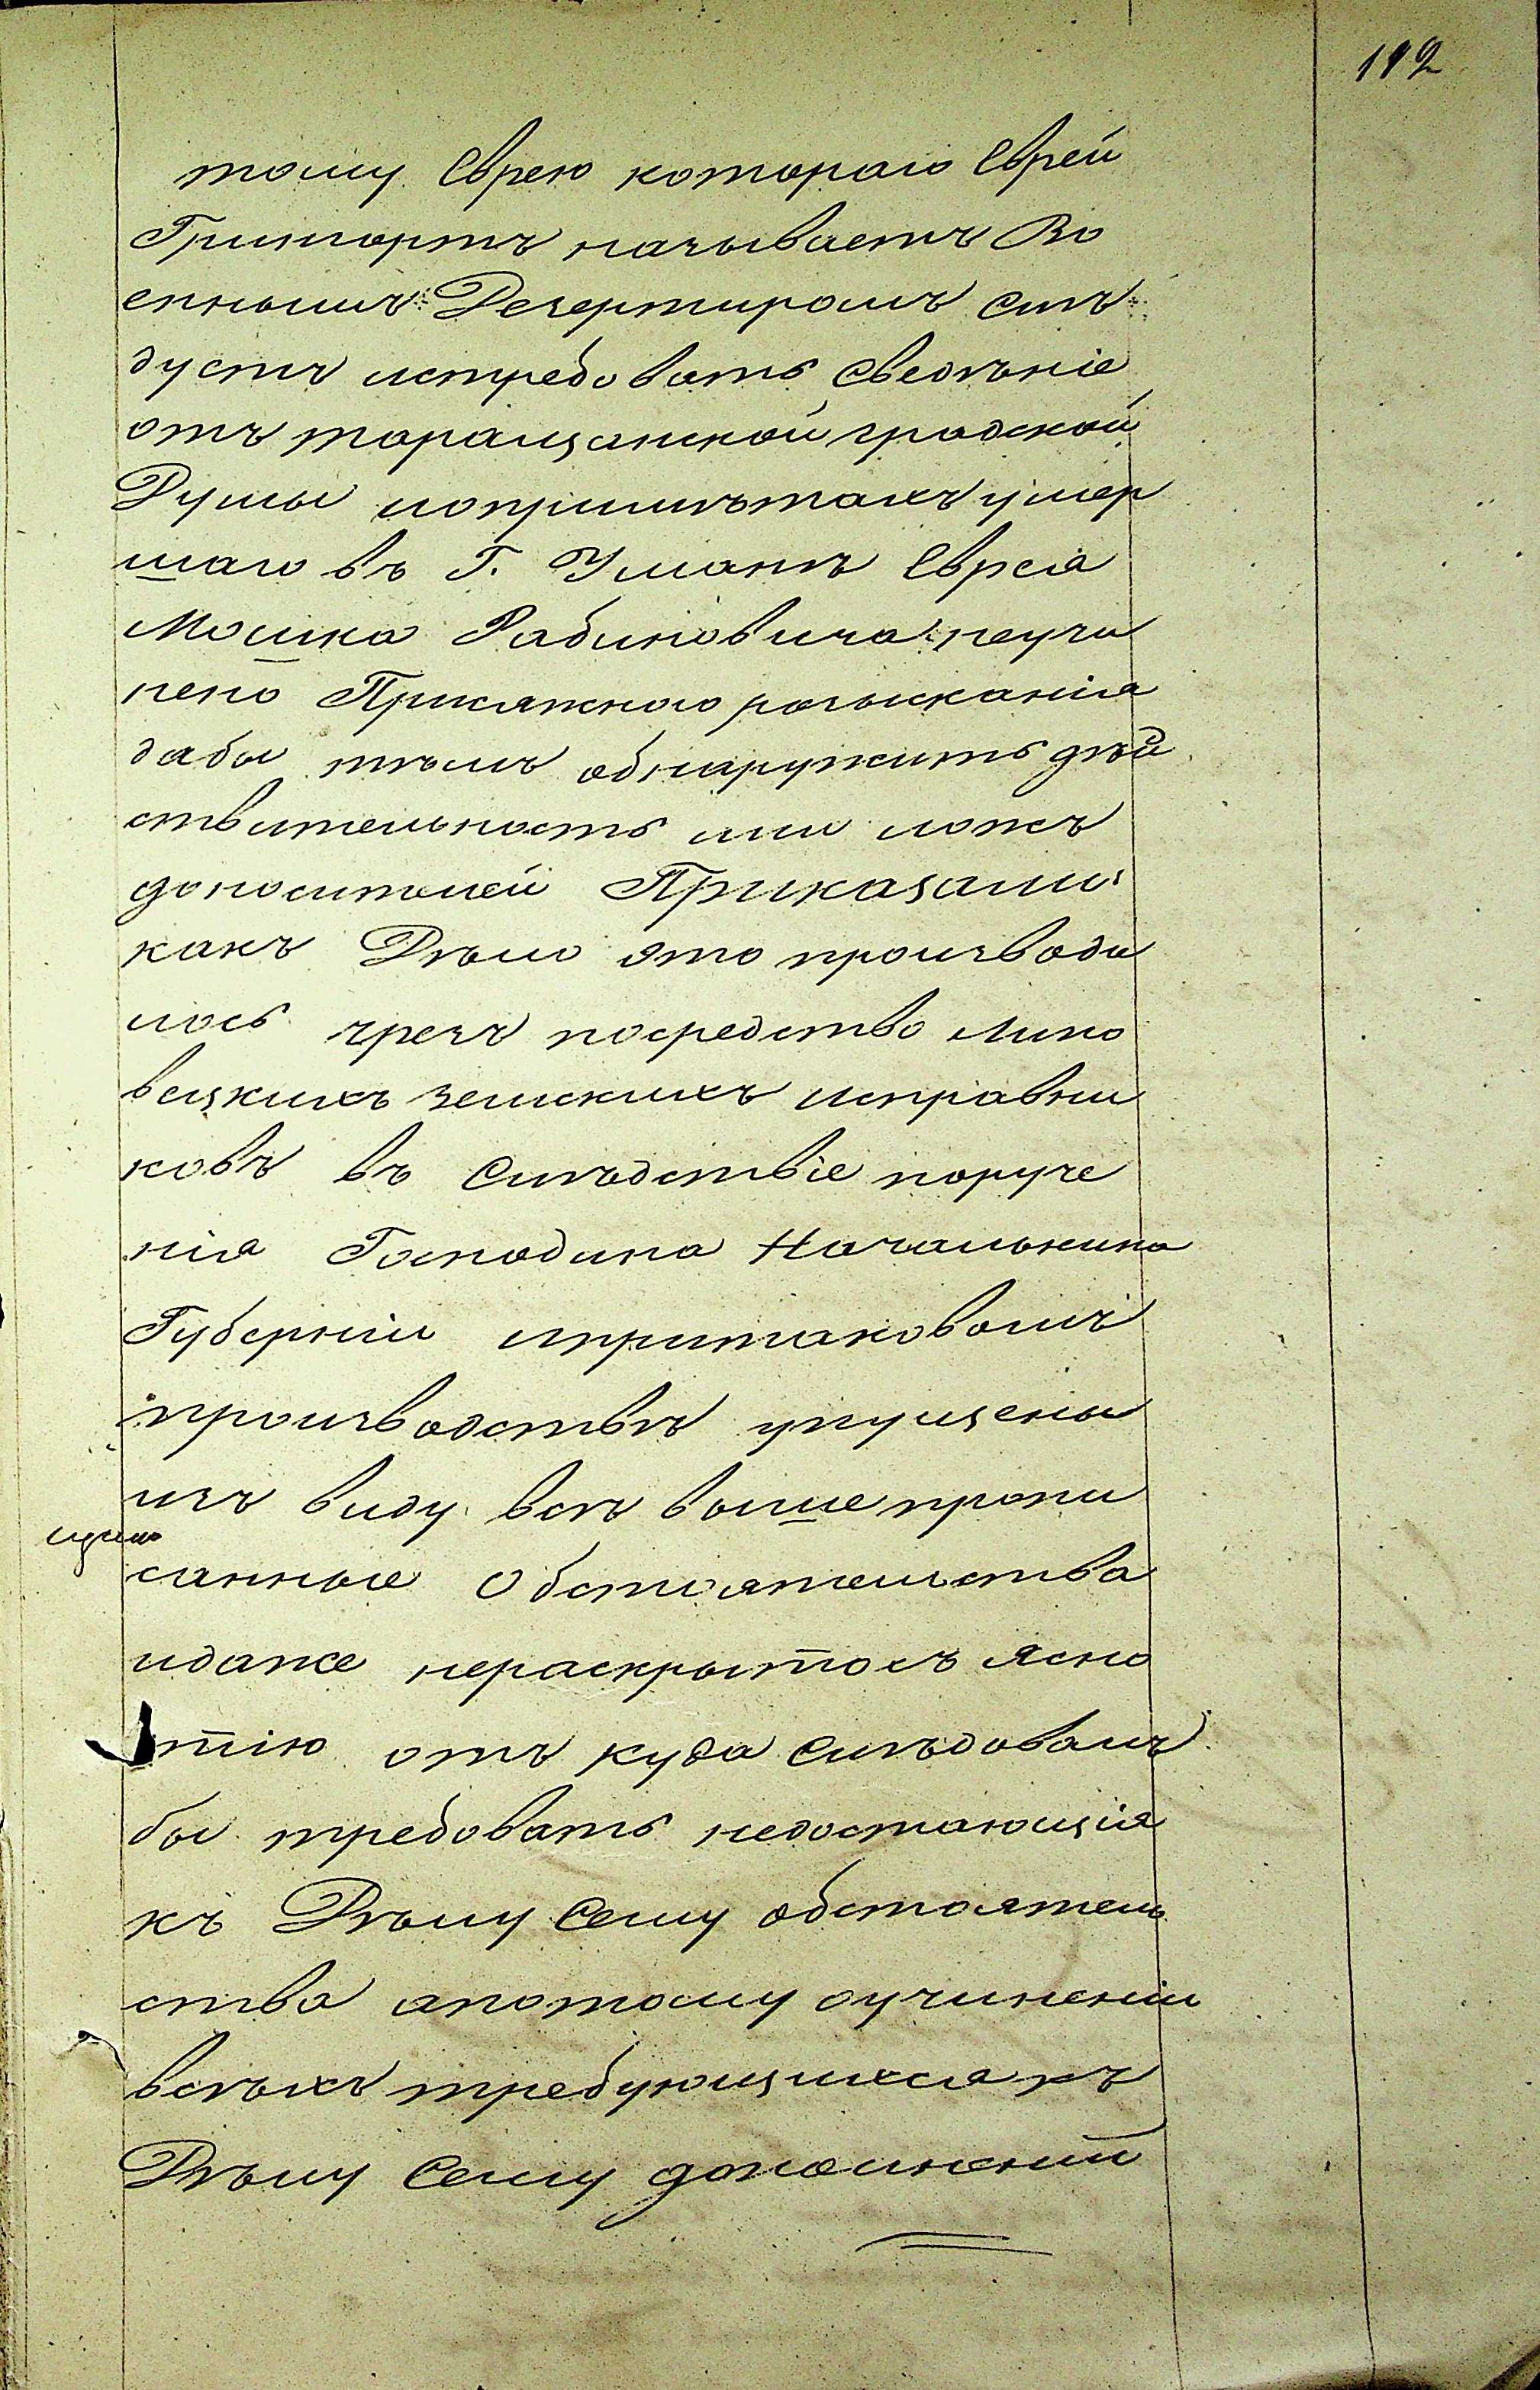 112
тому Еврею котораго Еврей
Гринортъ називаетъ Во
еннымъ Дезертиромъ слѣ
дуетъ истребовать сведѣніе
отъ таращанской градской
Думы иопримѣтахъ умер
шаго въ Г. Уманѣ Еврея
Мошка Рабиновича неучи
нено Присяжного розысканія
дабы тѣмъ обнаружить дѣй
ствительность или ложъ
доносителей Приказали
какъ Дѣло ято производи
лось чрезъ посредство Липо
вецкихъ земскихъ исправни
ковъ въ Слѣдствіе поруче
нія Господина Начальника
Губерніи ипритаковомъ
производствѣ упущены
изъ виду всѣ вышепропи
санные Обстоятельства
идаже нераскрытосъ Ясно
стію отъ куда Слѣдовалъ
бы требовать недостающія
къ Дѣлу Сему обстоятель
ства апотому оучиненіи
всѣхъ требующихся къ
Дѣлу Сему дополненій